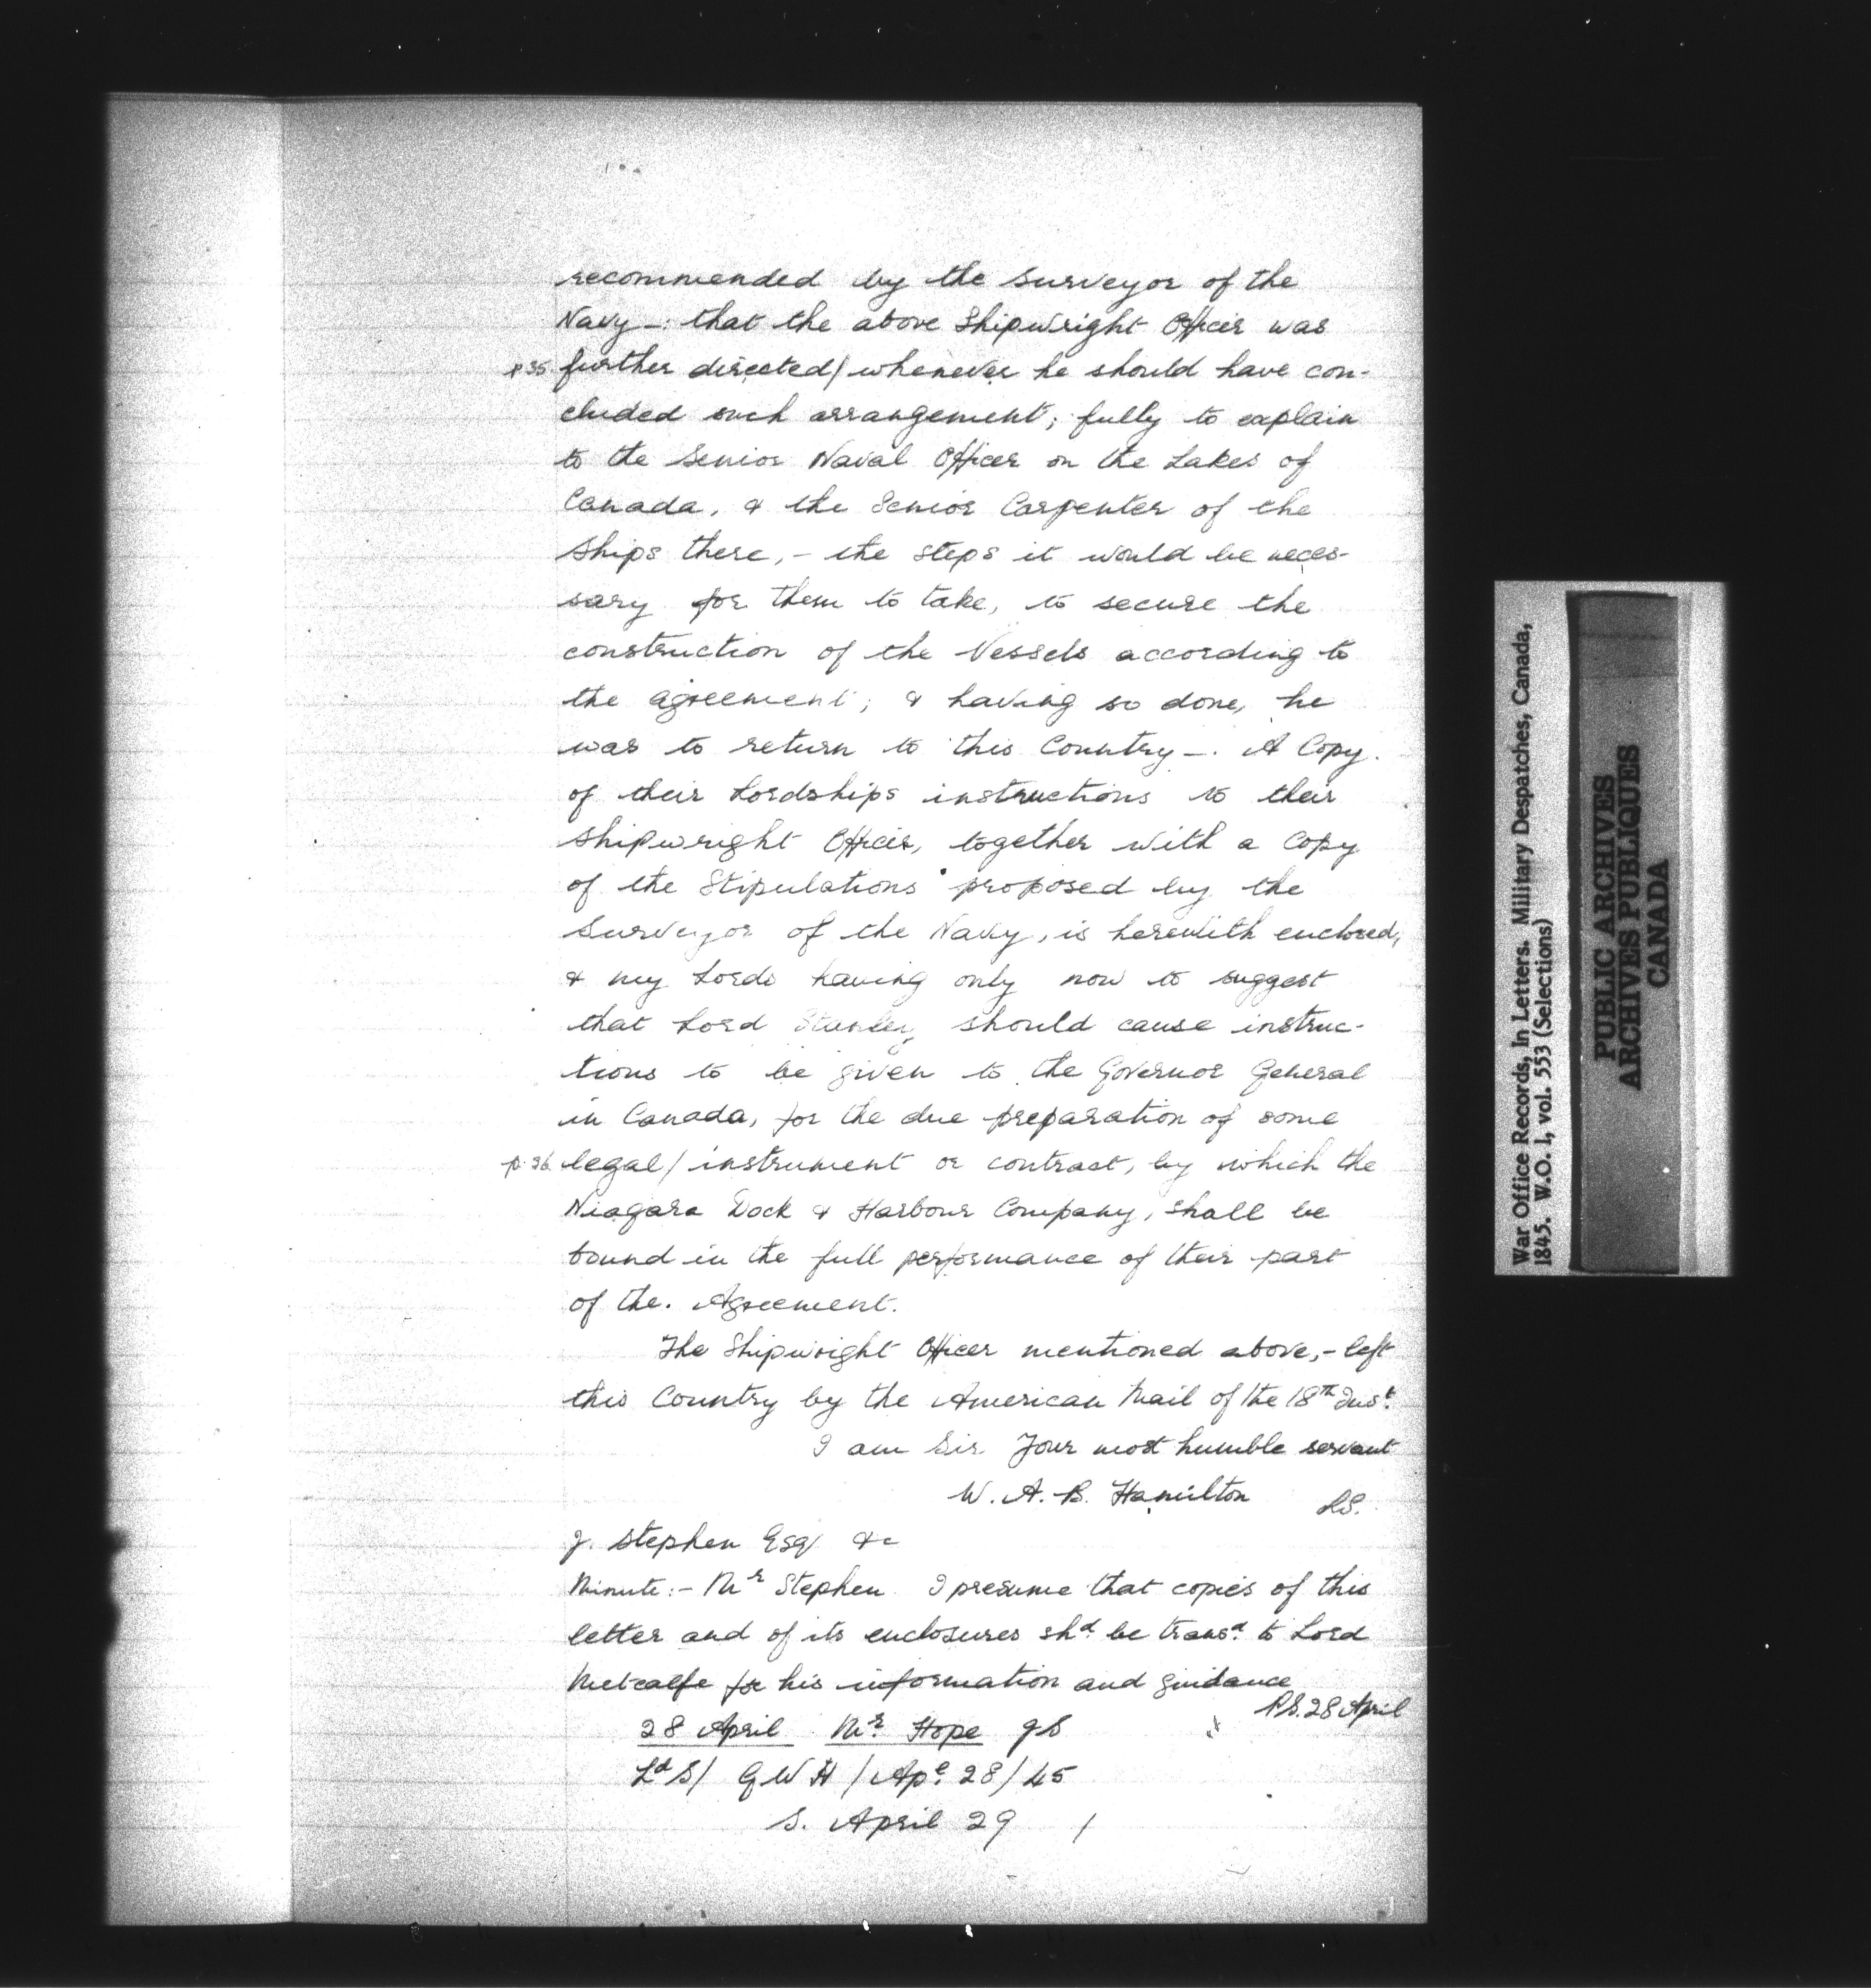 recommended by the Surveyor of the
Navy -: that the above Shipwright Officer was
p 35 further directed/ whenever he should have con-
cluded such arrangement; fully to explain
to the Senior Naval Officer on the Lakes of
Canada, & the Senior Carpenter of the
Ships there, - the steps it would be neces-
sary for them to take, to secure the
construction of the Vessels according to
the agreement; & having so done, he
was to return to this Country -. A Copy.
of their Lordships instructions to their
Shipwright Officer, together with a Copy
of the Stipulations proposed by the
Surveyor of the Navy, is herewith enclosed,
& my Lords having only now to suggest
that Lord Stanley should cause instruc-
tions to be given to the Governor General
in Canada, for the due preparation of some
p 36 legal/ instrument or contract, by which the
Niagara Dock & Harbour Company, shall be
bound in the full performance of their part
of the. Agreement.
The Shipwright Officer mentioned above, - left
this Country by the American Mail of the 18th Inst.
I am Sir Your most humble servant
W. A. B. Hamilton
J. Stephen Esq &c
Minute:- Mr Stephen I presume that copies of this
letter and of its enclosures shd. be transd. to Lord
Metcalfe for his information and guidance
P.S. 28 April
28 April Mr. Hope JS
Ld S/ GWH / Apl. 28/45
S. April 29 /
War Office Records, In Letters. Military Despatches, Canada,
1845. W.O. 1, vol. 553 (Selections)
PUBLIC ARCHIVES
ARCHIVES PUBLIQUES
CANADA